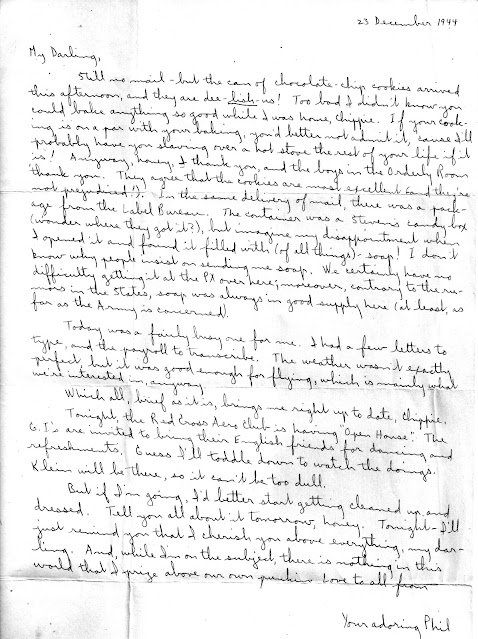 23 December 1944
My Darling,
Still no mail - but the can of chocolate-chip cookies arrived
this afternoon, and they are dee-lish-us! Too bad I didn't know you
could bake anything so good while I was home, Chippie. If your cook-
ing is on a par with your baking, you'd better not admit it, 'cause I'll
probably have you slaving over a hot stove the rest of your life if it
is! Anyway, honey, I thank you, and the boys in the Orderly Room
thank you. They agree that the cookies are most excellent (and they're
not prejudiced!). In the same delivery of mail, there was a pack-
age from the Label Bureau. The container was a Steven's candy box
(wonder where they got it?), but imagine my disappointment when
I opened it and found it filled with (of all things) - soap! I don't
know why people insist on sending me soap. We certainly have no
difficulty getting it at the PX over here; moreover, contrary to the ru-
mors in the States, soap was always in good supply here (at least, as
far as the Army is concerned).
Today was a fairly busy one for me. I had a few letters to
type, and the payroll to transcribe. The weather wasn't exactly
perfect, but it was good enough for flying, which is mainly what
we're interested in, anyway.
Which all, brief as it is, brings me right up to date, Chippie.
Tonight, the Red Cross Aero Club is having "Open House". The
G.I.'s are invited to bring their English friends for dancing and
refreshments. Guess I'll toddle down to watch the doings.
Klein will be there, so it can't be too dull.
But if I'm going, I'd better start getting cleaned up, and
dressed. Tell you all about it tomorrow, honey. Tonight - I'll
just remind you that I cherish you above everything, my dar-
ling. And, while I'm on the subject, there is nothing in this
world that I prize above our own punkin. Love to all from
Your adoring Phil